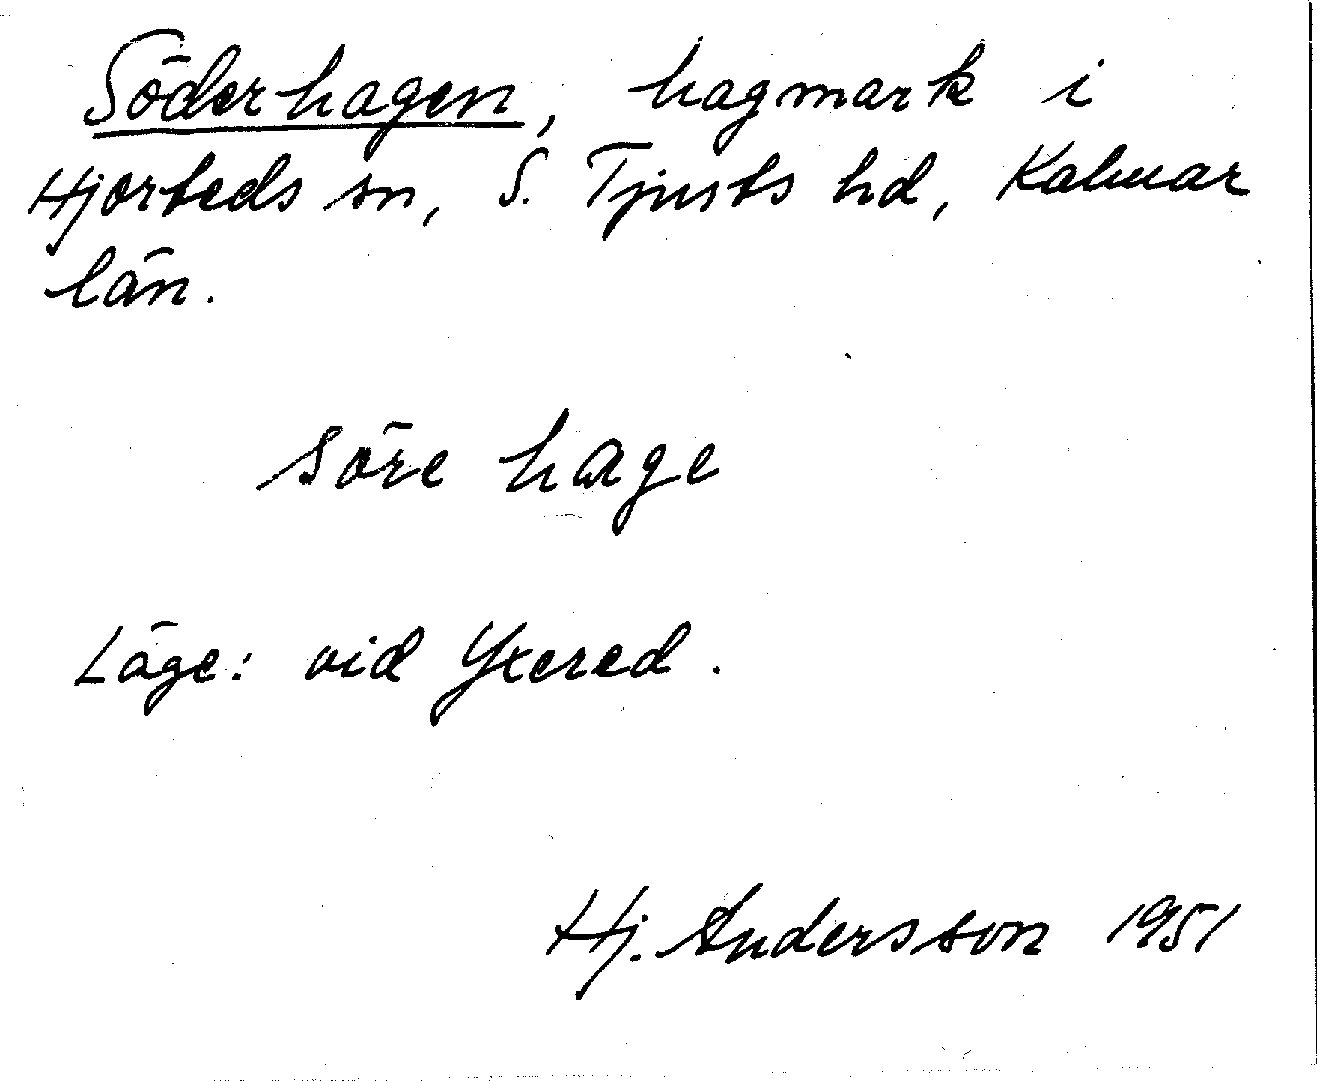 Söderhagen, hagmark i
Hjorteds sn, S. Tjusts hd, Kalmar
län.
söre hage
Läge: vid Yxered.
Hj. Andersson 1951